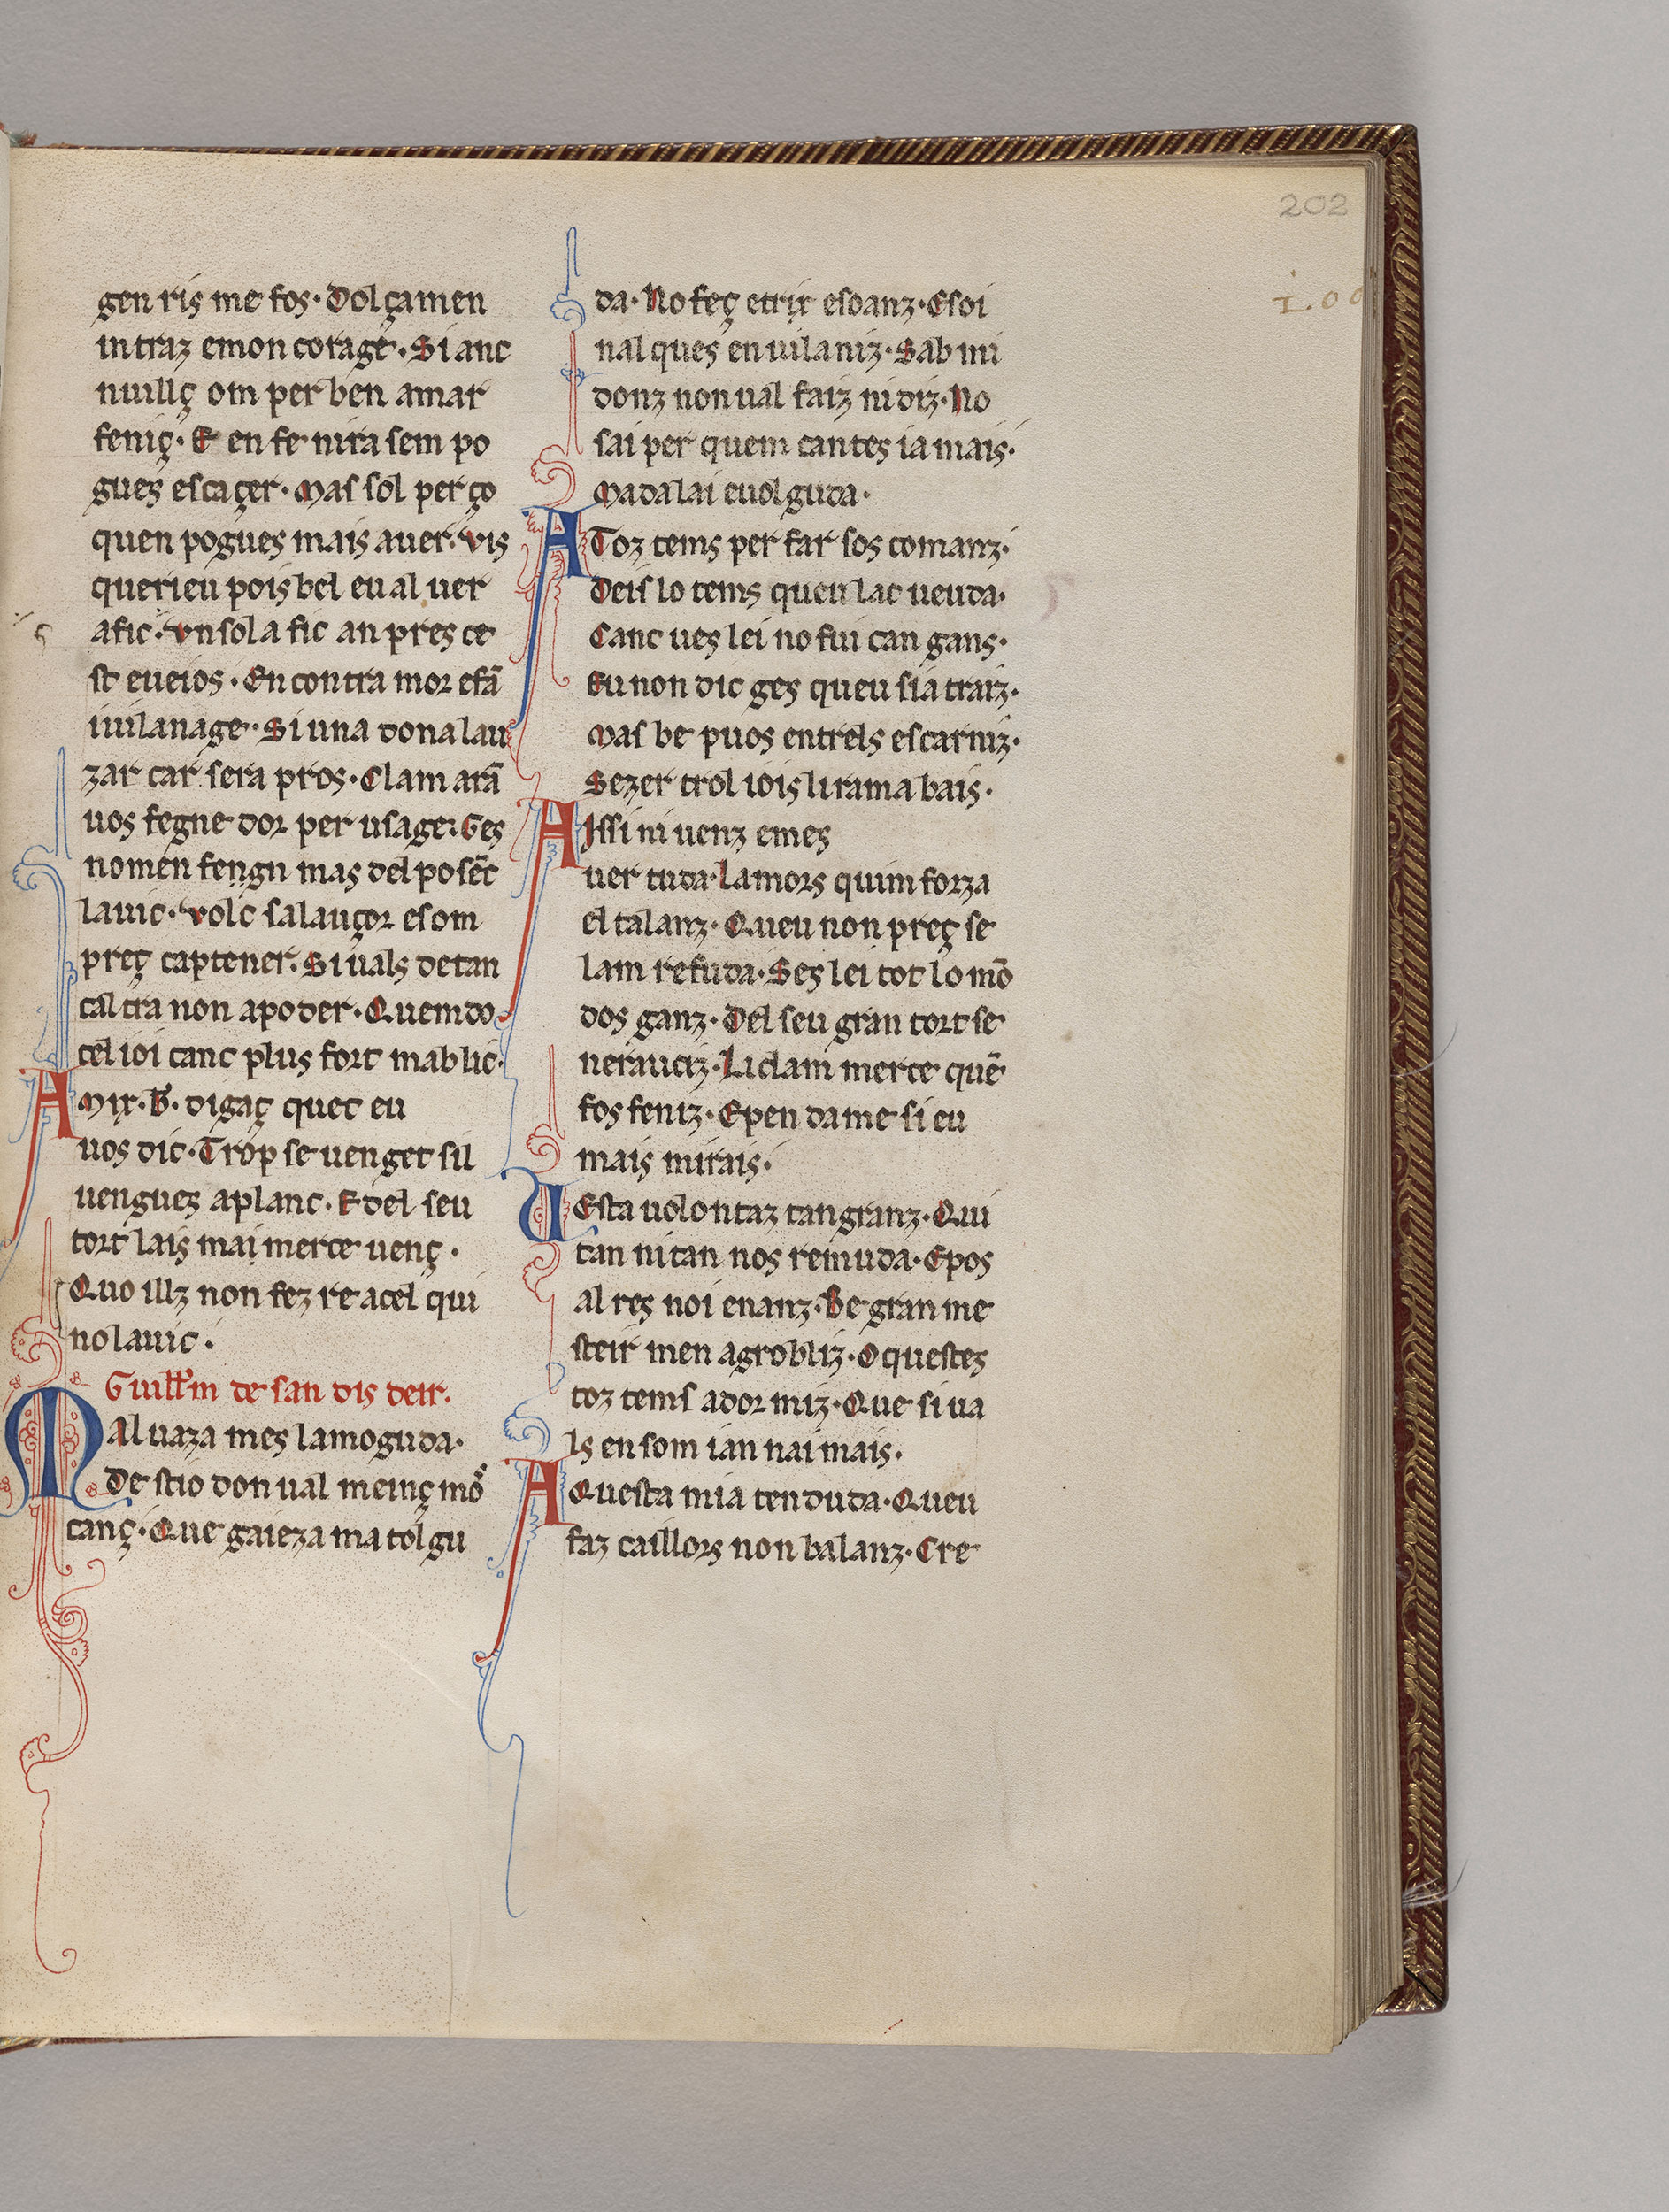 202
gen riş me fos· Dolçamen
intraz emon corage·. Si anc
nuillç om per ben amar
feniç· E en fe nira sem po
gueş escaçer· Mas sol per ço
quen pogueş maiş auer· vis
querieu poiş bel eu al uer
afic· vn sol a fic an preş ce
st eueios· En contra mor efā
iuilanage· Si una dona lau
zar car sera pros· Clam arā
uos fegne dor per usage· Ges
nomen fengn maş del po sēc
lauic· volc sa lauçor esom
preç captener· Si ualş detan
caltra non apoder· Quem do
cel ioi canc pluş fort mablic·
Amix· B· digaç quet eu
uos dic· Trop se uenget sil
uengueş aplanc· E del seu
tort laiş mai merce uenç·
Quo illz non fez re acel qui
no lauic·
Guillm de san dis deir.
Maluaza meş lamoguda·
De stio don ual meinç mō
canç· Que gaieza ma tolgu
da· No feç etrix esdanz· Esoi
nal queş en uilaniz· Sab mi
donz non ual faiz ni diz· No
sai per quem canteş ia maiş·
Madalai euolguda·
A Toz temş per far sos comanz·
Deis lo temş queu lac ueuda·
Canc ueş lei no fui can ganş·
Eu non dic geş queu sia traiz·
Mas be puos entrelş escarniz·
Sezer trol ioiş lirama baiş·
Aissi ni uenz emeş
uer tuda· Lamorş quim forza
el talanz· Queu non preç se
lam refuda· Seş lei tot lo mō
dos ganz· Del seu gran tort se
nerauciz· Li clam merce quē
fos feniz· Epen da me si eu
maiş miraiş·
Uesta uolontaz tan granz· Qui
tan ni tan nos remuda· Epos
al reş noi enanz· Be gran me
steir men agrobliz· O questeş
toz tems ador miz· Que si ua
lş en som ian nai mais·
Aquesta mia tenduda· Queu
faz caillorş non balanz· Cre